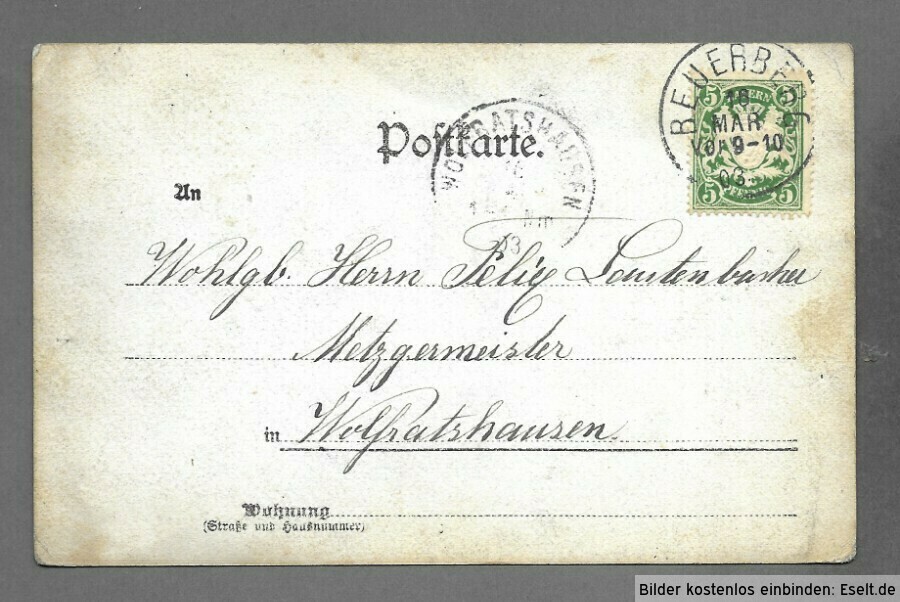 BEUERBERG
16
MAR
Vor 9-10
03
5 BAYERN 5
5 PFENNIG 5
WOLFRATSHAUSEN
Nm
03
Postkarte.
An
Wohlgb. Herrn Felix Lautenbacher
Metzgermeister
in Wolfratshausen.
Wohnung
(Straße und Hausnummer)
Bilder kostenlos einbinden: Eselt.de